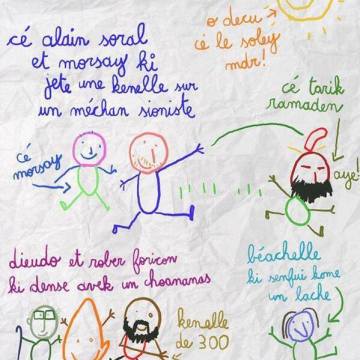 o decu
cé le soley
mdr!
cé alain soral
et morsay ki
jete une kenelle sur
un méchan sioniste
cé tarik
ramaden
cé
morsay
aye!
dieudo et rober foricon
ki dense avek un choananas
béachelle
ki senfui kome
un lache
kenelle
de 300